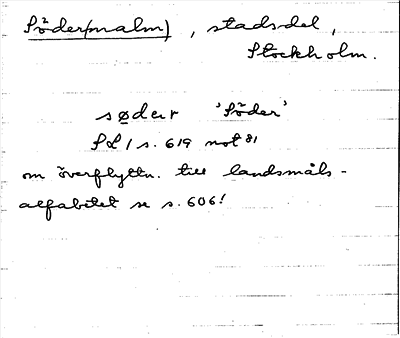 Söder(malm), stadsdel,
Stockholm.
sødər 'Söder'
SL 1 s. 619 not 81
om överflyttn. till landsmåls-
alfabetet se s. 606!